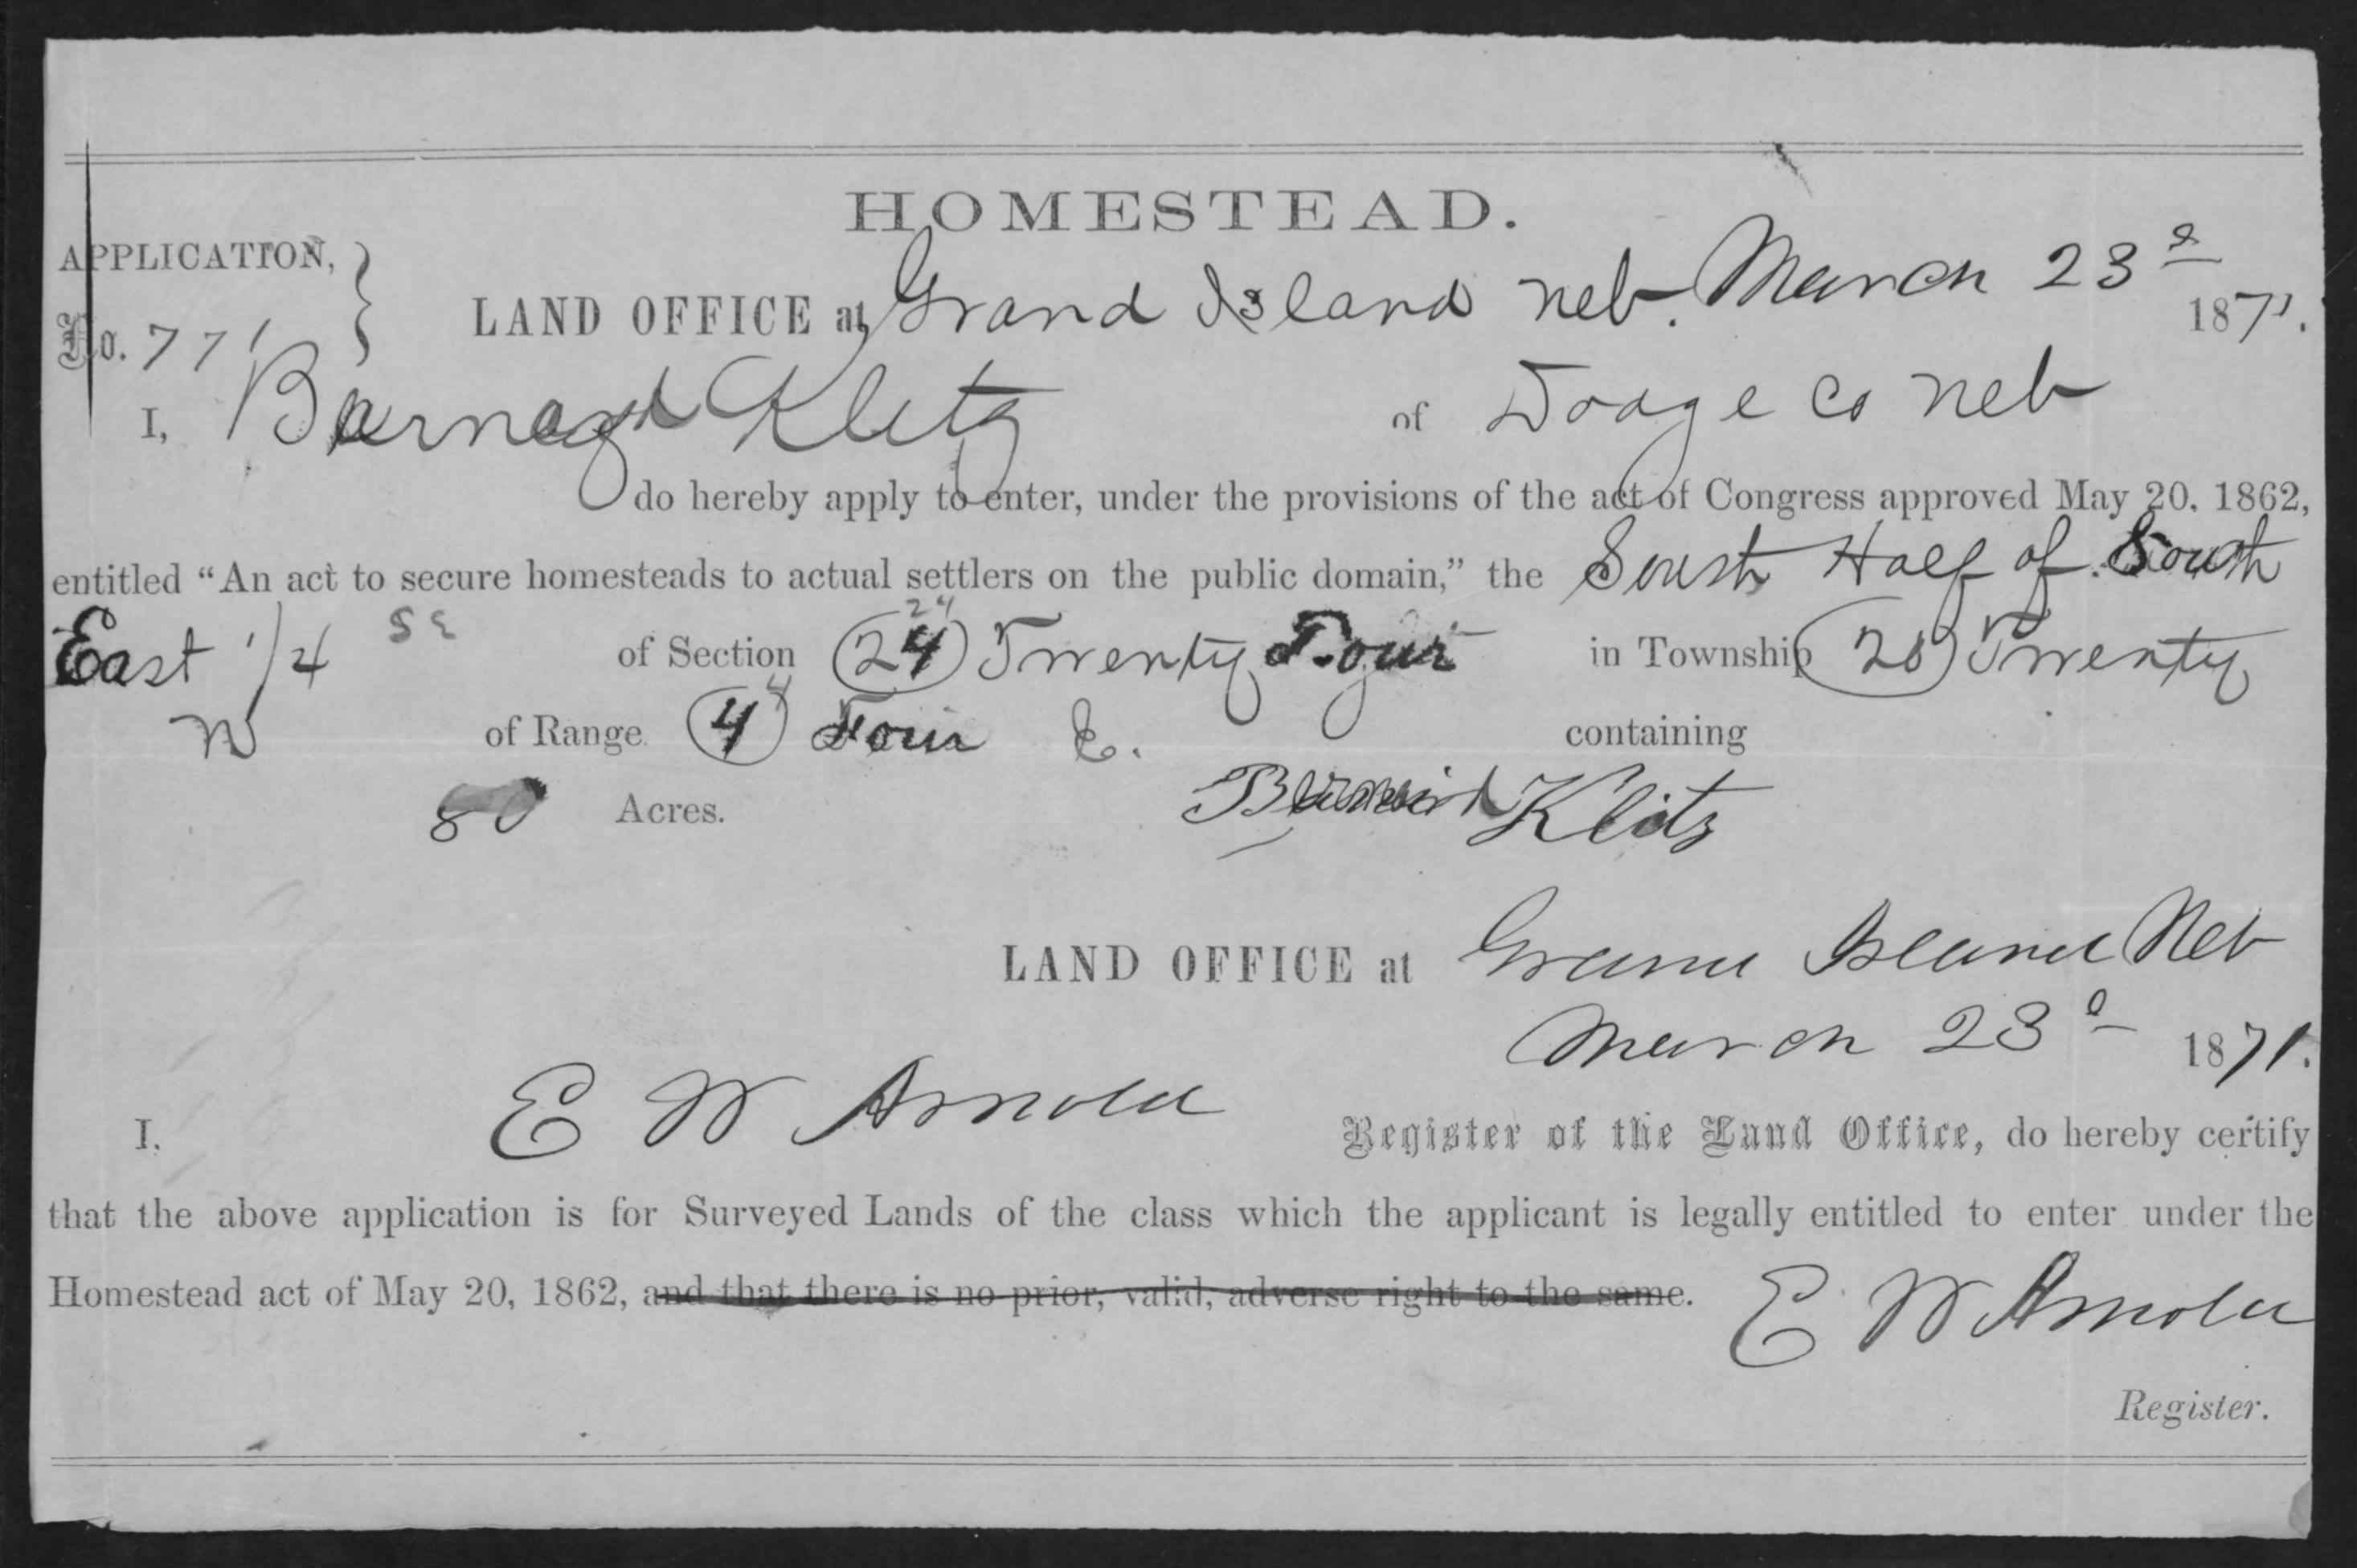 HOMESTEAD.
APPLICATION,
No. 771
LAND OFFICE at Grand Island Neb. March 23d 1871.
I, Barnard Kletz of Dodge Co Neb
do hereby apply to enter, under the provisions of the act of Congress approved May 20, 1862,
entitled “An act to secure homesteads to actual settlers on the public domain,” the South Half of South
East 1/4 SE of Section 24 (24) Twenty Four in Township (20) Twenty
N of Range (4) 4 Four E. containing
80 Acres. Klitz
LAND OFFICE at Grand Island Neb
March 23d 1871.
I. E W Arnold Register of the Land Office, do hereby certify
that the above application is for Surveyed Lands of the class which the applicant is legally entitled to enter under the
Homestead act of May 20, 1862, and that there is no prior, valid, adverse right to the same. E W Arnold
Register.